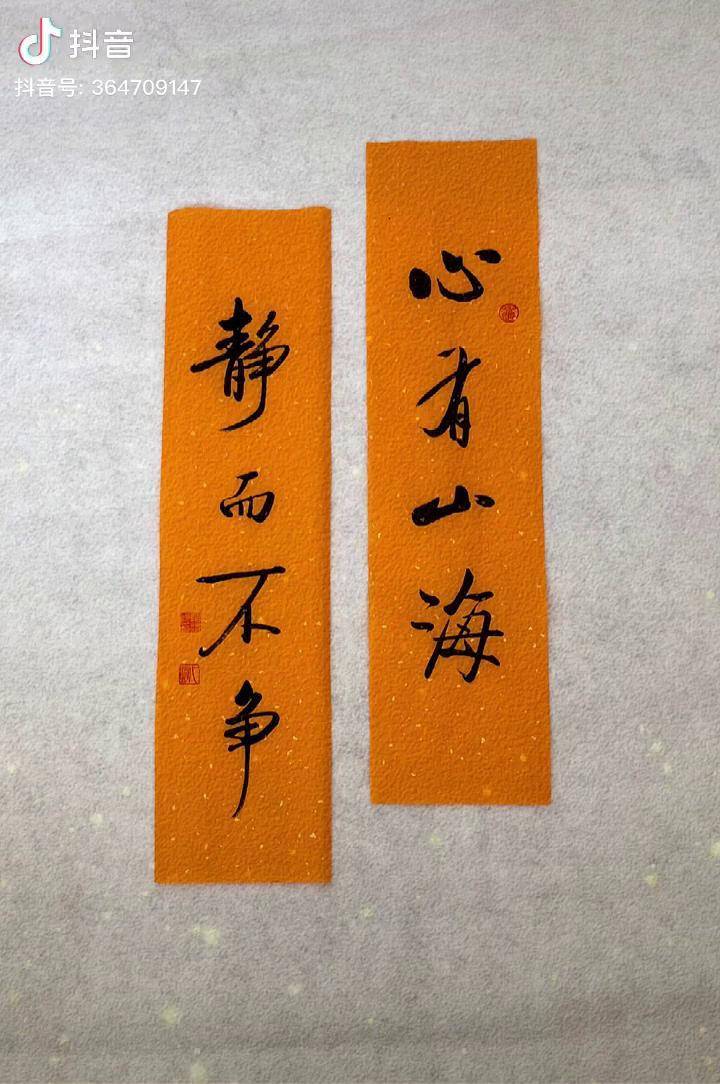 抖音
抖音号: 364709147
心有山海
静而不争